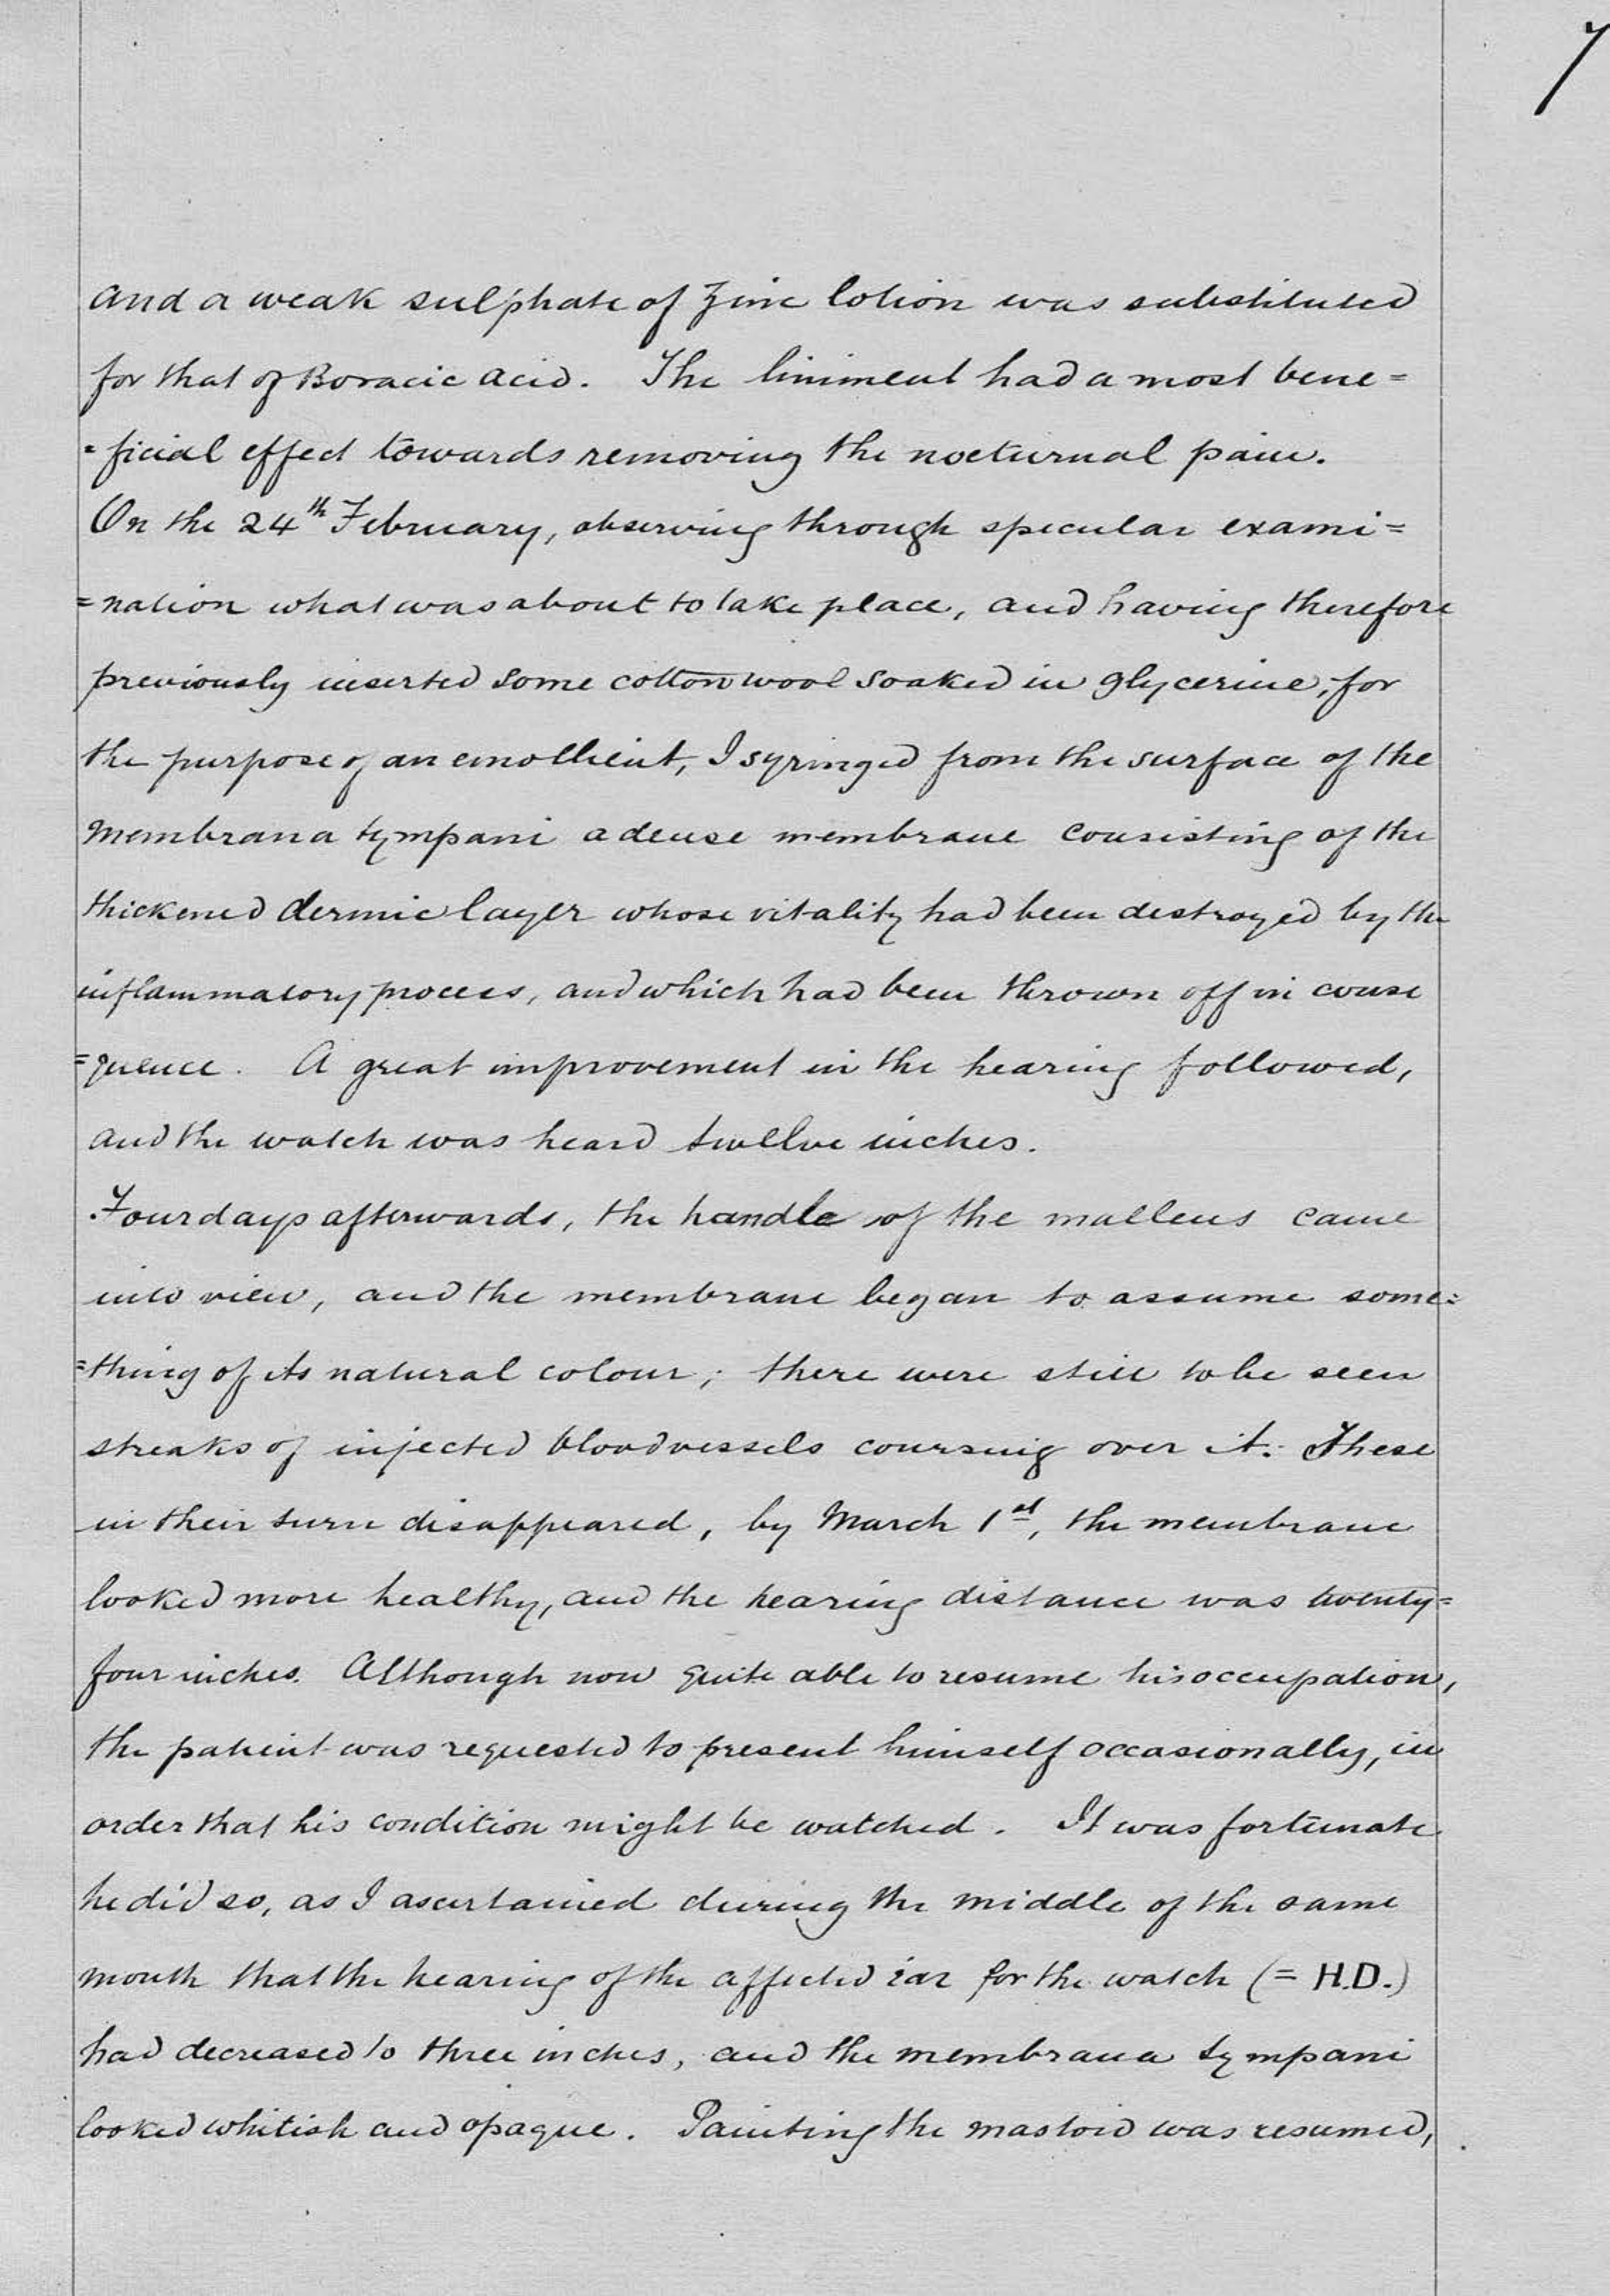 7
and a weak sulphate of Zinc lotion was substituted
for that of Boracic acid. The liniment had a most bene=
=ficial effect towards removing the nocturnal pain.
On the 24th February, observing through specular exami=
=nation what was about to take place, and having therefore
previously inserted some cotton wool soaked in glycerine, for
the purpose of an emollient, I syringed from the surface of the
membrana tympani a dense membrane consisting of the
thickened dermic layer whose vitality had been destroyed by the
inflammatory process, and which had been thrown off in conse
=quence. A great improvement in the hearing followed,
and the watch was heard twelve inches.
Four days afterwards, the handle of the malleus came
into view, and the membrane began to assume some=
=thing of its natural colour; there were still to be seen
streaks of injected bloodvessels coursing over it. These
in their turn disappeared, by March 1st, the membrane
looked more healthy, and the hearing distance was twenty=
four inches. Although now quite able to resume his occupation,
the patient was requested to present himself occasionally, in
order that his condition might be watched. It was fortunate
he did so, as I ascertained during the middle of the same
month that the hearing of the affected ear for the watch (= H.D.)
had decreased to three inches, and the membrana tympani
looked whitish and opaque. Painting the mastoid was resumed,